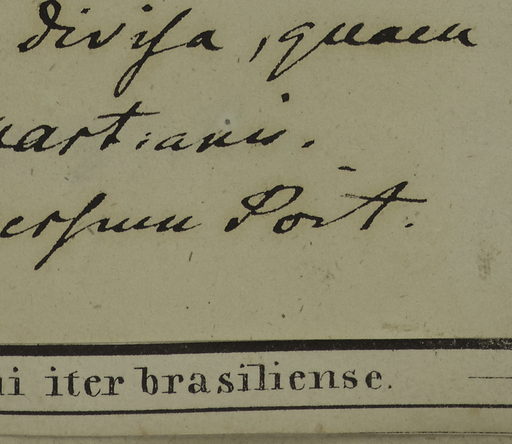 divisa, quam
artianis.
ersum Port.
ii iter brasiliense.